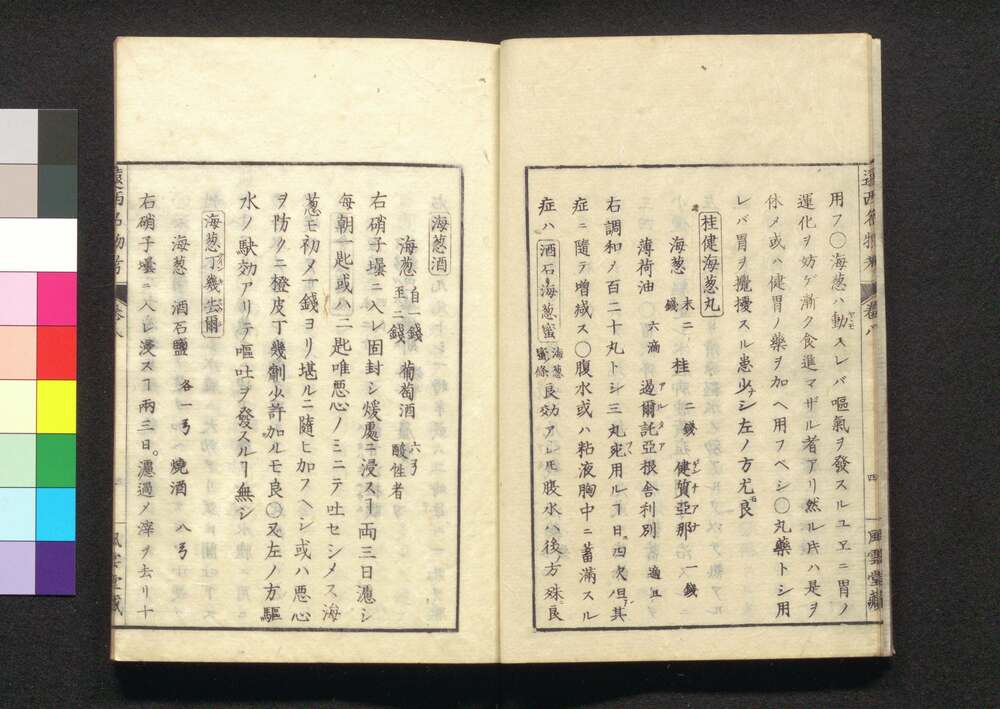 用フ〇海葱ハ動スレバ嘔氣ヲ發スルユヱニ胃ノ
運化ヲ妨ゲ漸ク食進マザル者アリ然ル𪜈ハ是ヲ
休メ或ハ健胃ノ藥ヲ加ヘ用フベシ〇丸藥トシ用
レバ胃ヲ攪擾スル患少シ左ノ方尤良
桂健海葱丸
海葱 末二錢 桂 二錢 健質亞那 一錢
薄荷油 六滴 過爾託亞根舎利別 適宜
右調和メ百二十丸トシ三丸宛用ルヿ日四次但其
症ニ隨テ増減ス〇腹水或ハ粘液胸中ニ蓄滿スル
症ハ酒石海葱蜜 海葱蜜條 良効アレ𪜈腹水ハ後ノ方殊良
四
風雲堂藏
海葱酒
海葱 自一錢至二錢 葡萄酒 酸性者 六弓
右硝子壜ニ入レ固封シ煖處ニ浸スヿ両三日濾シ
毎朝一匙或ハ二匙唯悪心ノミニテ吐セシメス海
葱モ初メ一錢ヨリ堪ルニ隨ヒ加フヘシ或ハ悪心
ヲ防クニ橙皮丁幾劑少許加ルモ良〇又左ノ方驅
水ノ駃効アリテ嘔吐ヲ發スルヿ無シ
海葱丁幾去爾
海葱 酒石鹽 各一弓 焼酒 八弓
右硝子壜ニ入レ浸スヿ兩三日。濾過メ滓ヲ去リ十
遠西名物考
卷八